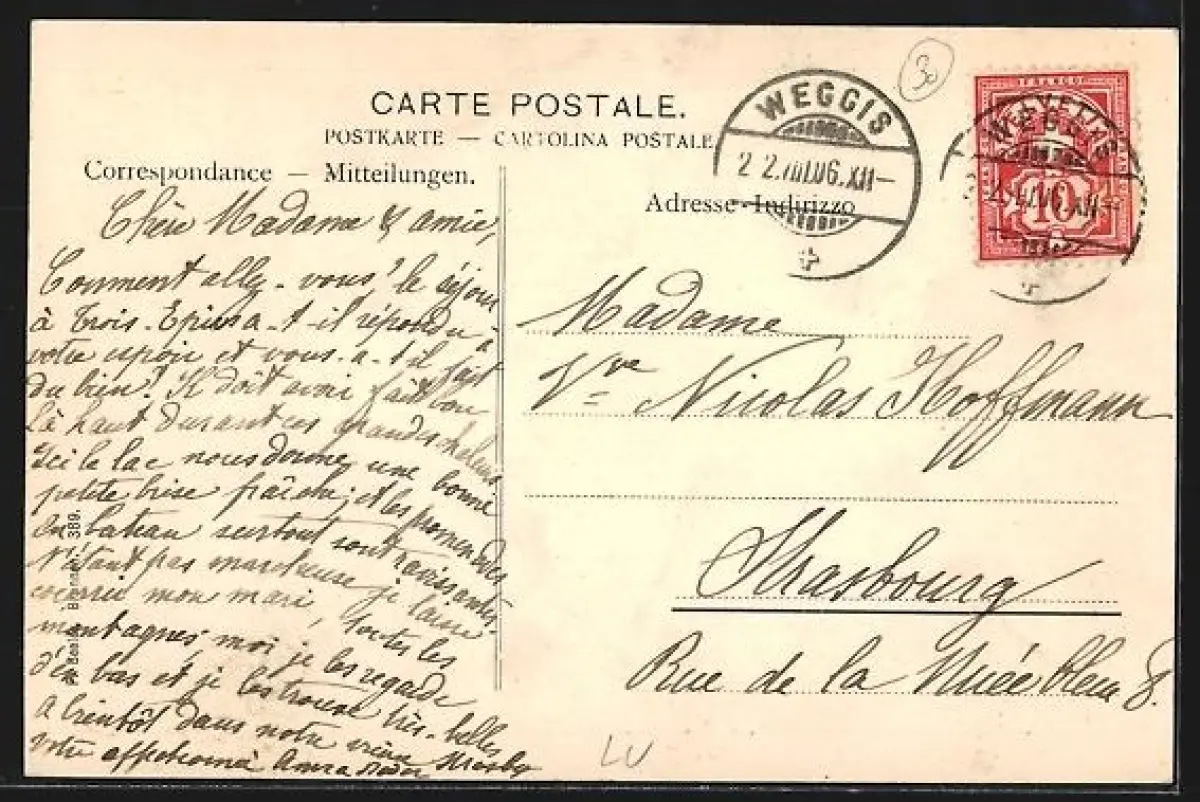 CARTE POSTALE.
POSTKARTE — CARTOLINA POSTALE
Correspondance — Mitteilungen.
Adresse - Indirizzo
WEGGIS
2 2.VIII.06.XII—
30
FRANCO
HELVETIA
10
Chère Madame & amie,
Comment allez-vous? le séjour
à Trois-Epis a-t-il répondu à
votre espoir et vous-a-t-il fait
du bien? Il doit avoir fait bon
là haut durant ces grandes chaleurs
Ici le lac nous donne une bonne
petite brise fraîche; et les promenades
en bateau surtout sont ravissantes.
N'étant pas marcheuse je laisse
courrir mon mari, toutes les
montagnes; moi je les regarde
d'en bas et je les trouve très-belles
A bientôt dans notre vieux Strasbg
votre affectionnée Anna
389.
Madame
Vve Nicolas Hoffmann
Strasbourg
Rue de la Nuée bleue 8.
LU